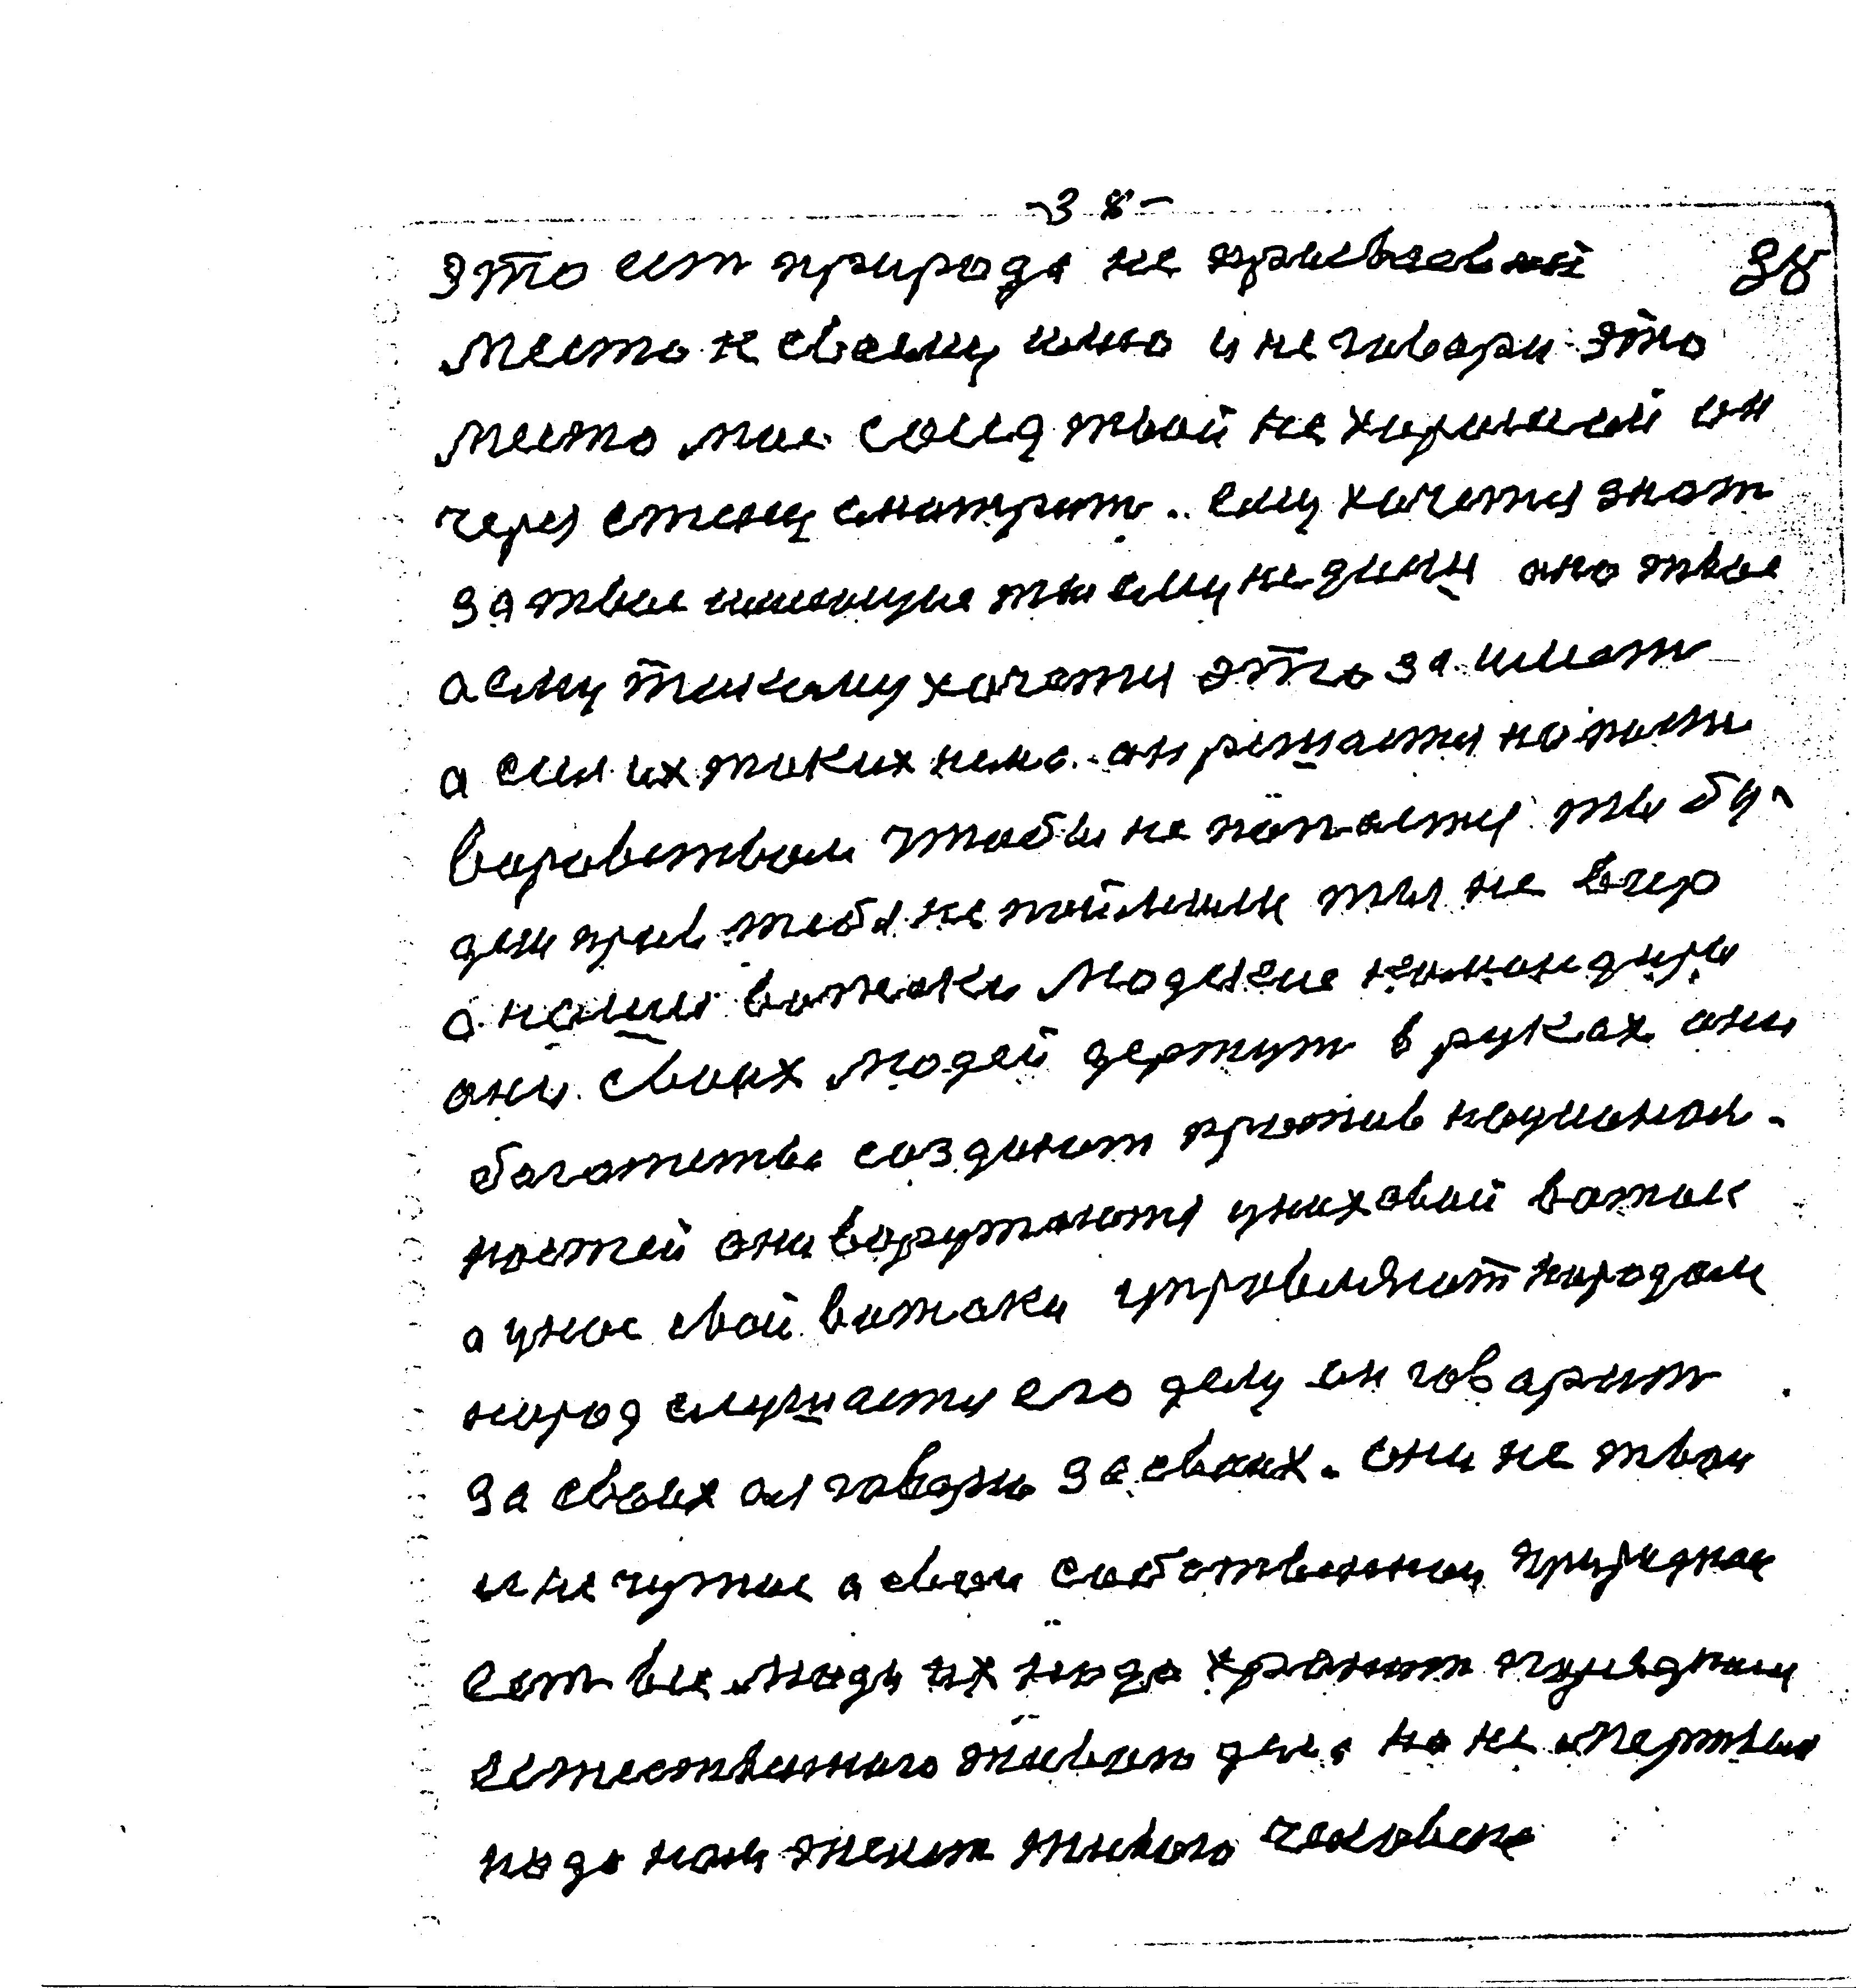 -38-
это ест природа не присваевай 38
место к своему имю и не говори это
место мае сосед твой не хороший он
через стену смотрит. ему хочетця знат
за твое ты ему не дишь оно твое
а ему такому хочетця это занимат
а сил их таких нема. он решаетця на пости
воровством чтобы не попастця ты бу-
деш прав тебя не поймали ты не вчер
а наши вожаки людские командиры
они своих людей держут в руках они
багатства создают против национал-
ностей они воружаютця у них свой вожак
а у нас свои вожаки управляют народом
народ слушаетця его делу он говарит
за своих ты говори за своих. они не твои
и не чужие а свои собственнаи природнаи
ест все люди их нада хранит природнаи
естественного живого дела но не мертвыя
нада нам жизнь живого человека